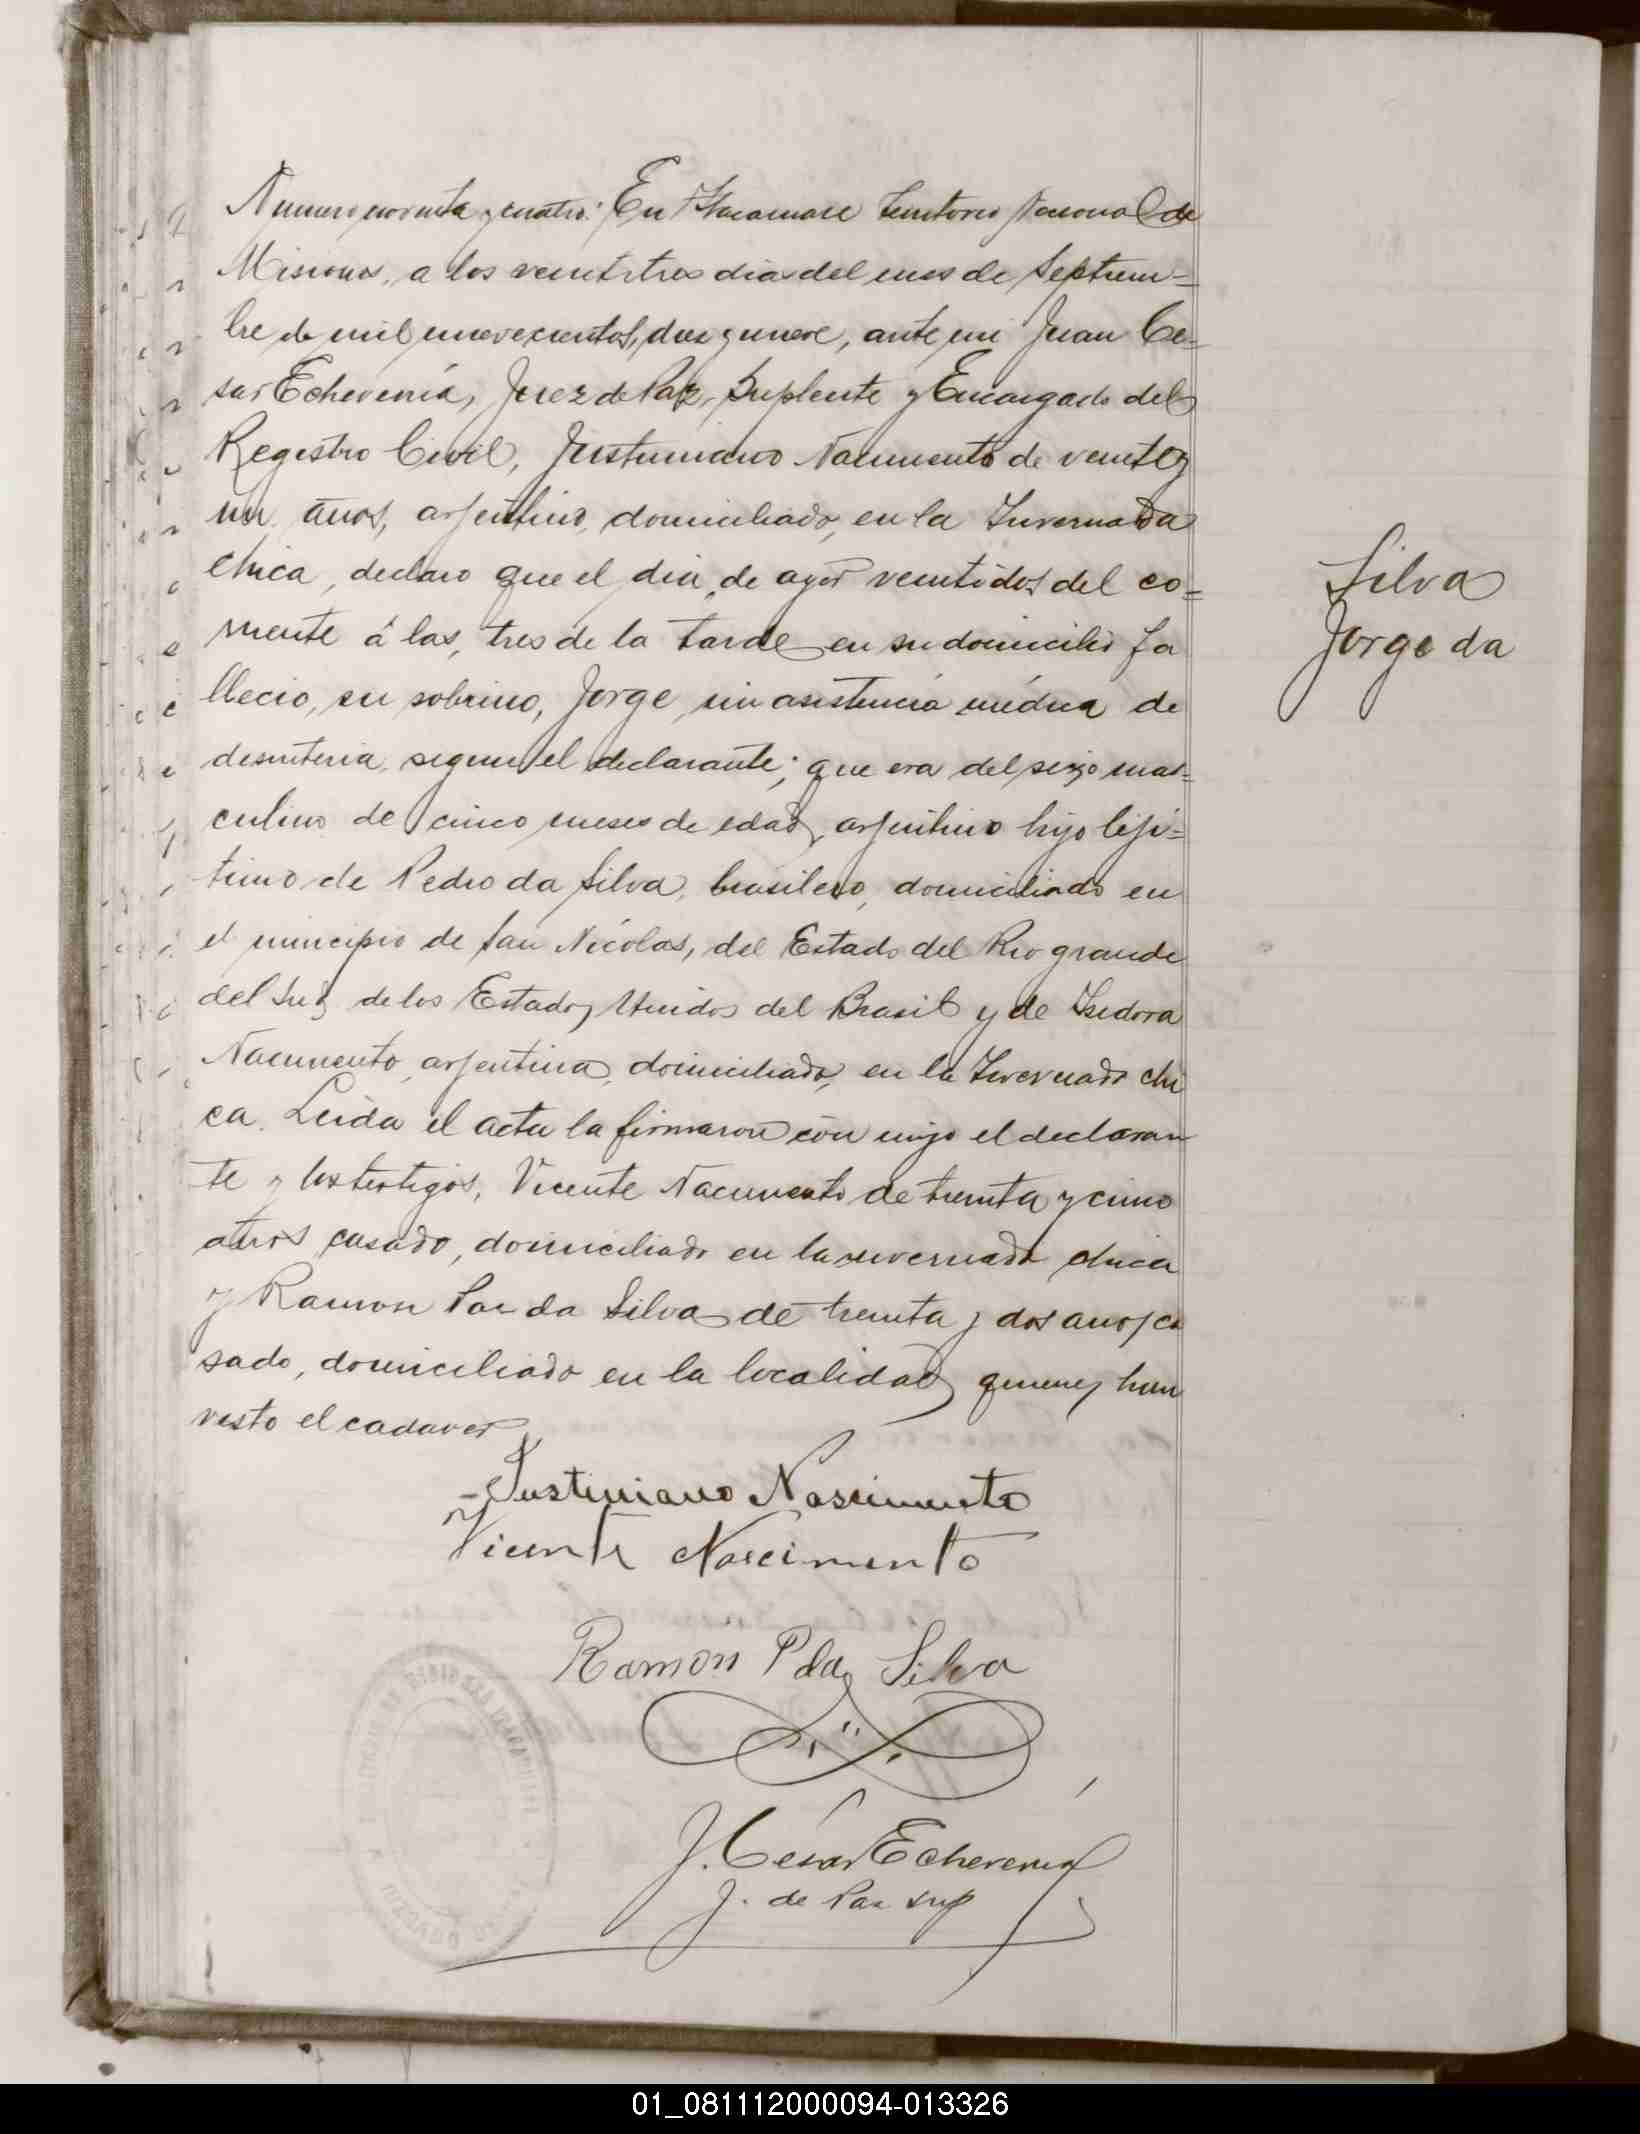 Numero noventa y cuatro: En Itacaruaré Territorio Nacional de
Misiones, a los veintitres dias del mes de Septiem=
bre de mil novecientos, diez y nueve, ante mi Juan Ce=
sar Echeverría, Juez de Paz, Suplente y Encargado del
Registro Civil, Justiniano Nacimento de veinte y
un años, arjentino, domiciliado, en la Invernada
chica, declaro que el dia, de ayer veintidos del co=
rriente á las, tres de la tarde en su domicilio fa
llecio, su sobrino, Jorge, sin asistencia médica de
desinteria, segun el declarante; que era del sexo mas=
culino de cinco meses de edad, arjentino hijo lejí=
timo de Pedro da Silva, brasilero, domiciliado en
el municipio de San Nícolas, del Estado del Rio grande
del Sud, de los Estados Unidos del Brasil y de Isidora
Nacimento, arjentina, domiciliada, en la Invernada chi
ca. Leida el acta la firmaron con migo el declaran
te y los testigos, Vicente Nacimento de treinta y cinco
años casado, domiciliado en la invernada chica
y Ramon Paz da Silva de treinta y dos años, ca
sado, domiciliado en la localidad, quienes han
visto el cadaver
Silva
Jorge da
Justiniano Nascimento
Vicente Nascimento
Ramón P da Silva
J. César Echeverría
J. de Paz sup
01_081112000094-013326